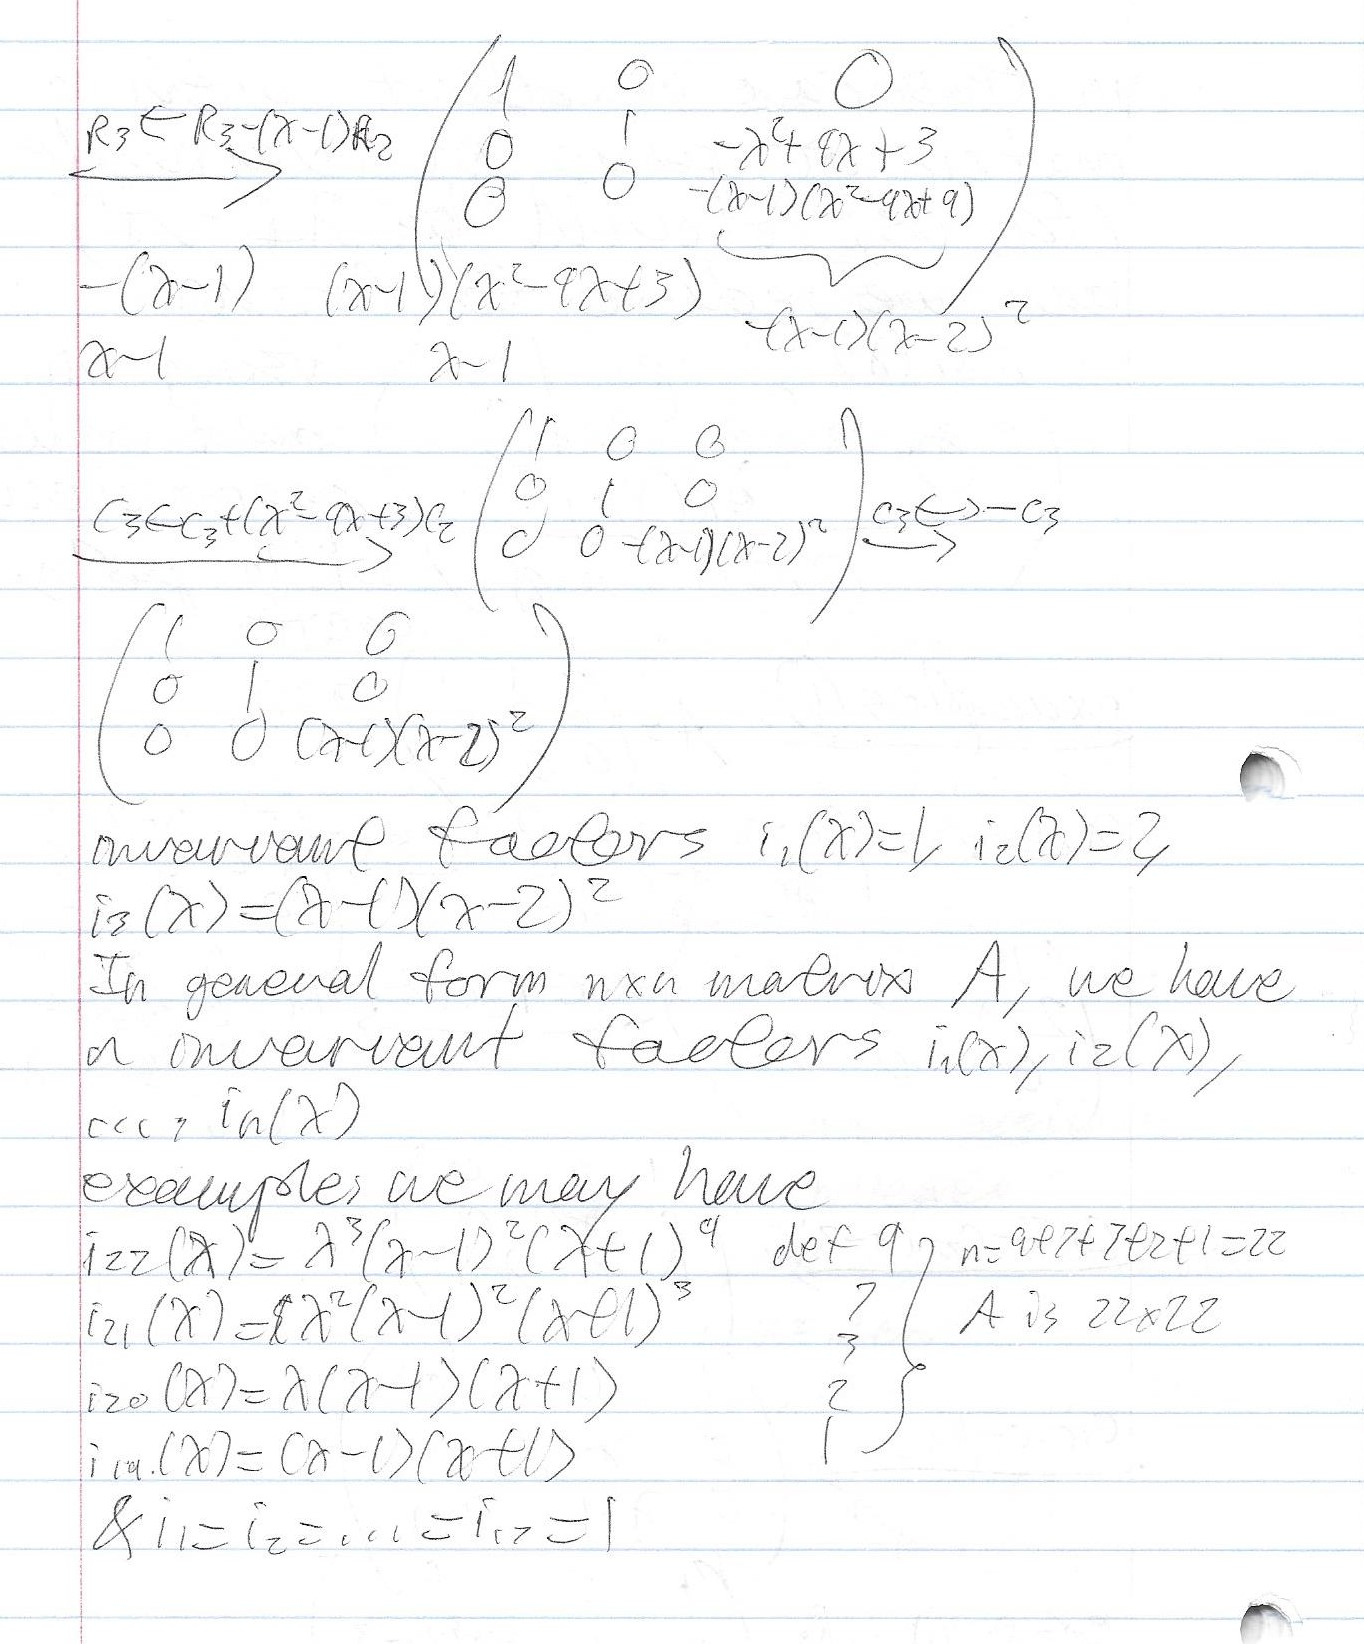 R₃ ← R₃ -(λ-1)R₂
1 0 0
0 1 -λ²+4λ+3
0 0 -(λ-1)(λ²-4λ+4)
-(λ-1) (λ-1)(λ²-4λ+3)
-(λ-1)(λ-2)²
λ-1 λ-1
C₃ ← C₃+(λ²-4λ+3)C₂
1 0 0
0 1 0
0 0 -(λ-1)(λ-2)²
C₃ ↔ -C₃
1 0 0
0 1 0
0 0 (λ-1)(λ-2)²
invariant factors i₁(λ)=1, i₂(λ)=2,
i₃(λ)=(λ-1)(λ-2)²
In general form n×n matrix A, we have
n invariant factors i₁(λ), i₂(λ),
..., iₙ(λ)
examples we may have
i₂₂(λ)= λ³(λ-1)²(λ+1)⁴ def 9
n=9+7+3+2+1=22
i₂₁(λ)=λ²(λ-1)²(λ+1)³ 7
A is 22×22
3
i₂₀(λ)=λ(λ-1)(λ+1) 2
i₁₉(λ)=(λ-1)(λ+1) 1
& i₁=i₂=...=i₁₇=1